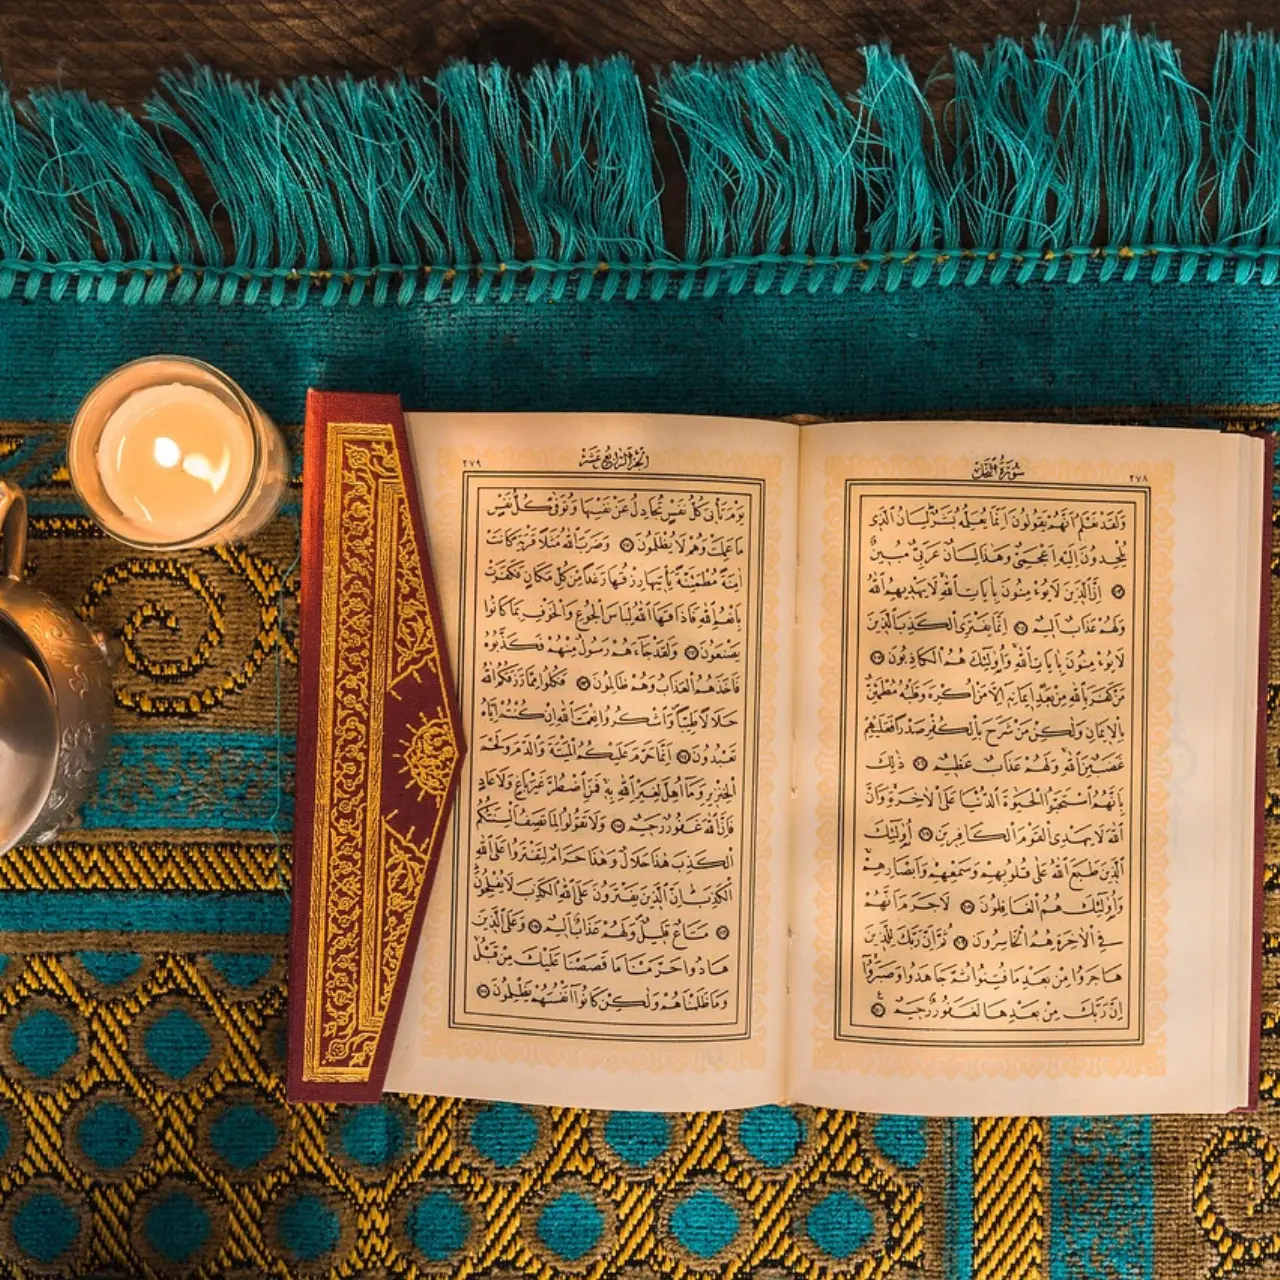 سُورَةُ النَّحْلِ ٢٧٨
وَلَقَدْ نَعْلَمُ اَنَّهُمْ يَقُولُونَ اِنَّمَا يُعَلِّمُهُ بَشَرٌ لِسَانُ الَّذِى
يُلْحِدُونَ اِلَيْهِ اَعْجَمِىٌّ وَهٰذَا لِسَانٌ عَرَبِىٌّ مُبِينٌ
١٠٣ اِنَّ الَّذِينَ لَا يُؤْمِنُونَ بِاٰيَاتِ اللّٰهِ لَا يَهْدِيهِمُ اللّٰهُ
وَلَهُمْ عَذَابٌ اَلِيمٌ ١٠٤ اِنَّمَا يَفْتَرِى الْكَذِبَ الَّذِينَ
لَا يُؤْمِنُونَ بِاٰيَاتِ اللّٰهِ وَاُولٰٓئِكَ هُمُ الْكَاذِبُونَ ١٠٥
مَنْ كَفَرَ بِاللّٰهِ مِنْ بَعْدِ اِيمَانِهِ اِلَّا مَنْ اُكْرِهَ وَقَلْبُهُ مُطْمَئِنٌّ
بِالْاِيمَانِ وَلٰكِنْ مَنْ شَرَحَ بِالْكُفْرِ صَدْرًا فَعَلَيْهِمْ
غَضَبٌ مِنَ اللّٰهِ وَلَهُمْ عَذَابٌ عَظِيمٌ ١٠٦ ذٰلِكَ
بِاَنَّهُمُ اسْتَحَبُّوا الْحَيٰوةَ الدُّنْيَا عَلَى الْاٰخِرَةِ وَاَنَّ
اللّٰهَ لَا يَهْدِى الْقَوْمَ الْكَافِرِينَ ١٠٧ اُولٰٓئِكَ
الَّذِينَ طَبَعَ اللّٰهُ عَلٰى قُلُوبِهِمْ وَسَمْعِهِمْ وَاَبْصَارِهِمْ
وَاُولٰٓئِكَ هُمُ الْغَافِلُونَ ١٠٨ لَا جَرَمَ اَنَّهُمْ
فِى الْاٰخِرَةِ هُمُ الْخَاسِرُونَ ١٠٩ ثُمَّ اِنَّ رَبَّكَ لِلَّذِينَ
هَاجَرُوا مِنْ بَعْدِ مَا فُتِنُوا ثُمَّ جَاهَدُوا وَصَبَرُوٓا
اِنَّ رَبَّكَ مِنْ بَعْدِهَا لَغَفُورٌ رَحِيمٌ ١١٠
اَلْجُزْءُ الرَّابِعُ عَشَرَ ٢٧٩
يَوْمَ تَأْتِى كُلُّ نَفْسٍ تُجَادِلُ عَنْ نَفْسِهَا وَتُوَفّٰى كُلُّ نَفْسٍ
مَا عَمِلَتْ وَهُمْ لَا يُظْلَمُونَ ١١١ وَضَرَبَ اللّٰهُ مَثَلًا قَرْيَةً كَانَتْ
اٰمِنَةً مُطْمَئِنَّةً يَأْتِيهَا رِزْقُهَا رَغَدًا مِنْ كُلِّ مَكَانٍ فَكَفَرَتْ
بِاَنْعُمِ اللّٰهِ فَاَذَاقَهَا اللّٰهُ لِبَاسَ الْجُوعِ وَالْخَوْفِ بِمَا كَانُوا
يَصْنَعُونَ ١١٢ وَلَقَدْ جَاءَهُمْ رَسُولٌ مِنْهُمْ فَكَذَّبُوهُ
فَاَخَذَهُمُ الْعَذَابُ وَهُمْ ظَالِمُونَ ١١٣ فَكُلُوا مِمَّا رَزَقَكُمُ اللّٰهُ
حَلَالًا طَيِّبًا وَاشْكُرُوا نِعْمَتَ اللّٰهِ اِنْ كُنْتُمْ اِيَّاهُ
تَعْبُدُونَ ١١٤ اِنَّمَا حَرَّمَ عَلَيْكُمُ الْمَيْتَةَ وَالدَّمَ وَلَحْمَ
الْخِنْزِيرِ وَمَٓا اُهِلَّ لِغَيْرِ اللّٰهِ بِهِ فَمَنِ اضْطُرَّ غَيْرَ بَاغٍ وَلَا عَادٍ
فَاِنَّ اللّٰهَ غَفُورٌ رَحِيمٌ ١١٥ وَلَا تَقُولُوا لِمَا تَصِفُ اَلْسِنَتُكُمُ
الْكَذِبَ هٰذَا حَلَالٌ وَهٰذَا حَرَامٌ لِتَفْتَرُوا عَلَى اللّٰهِ
الْكَذِبَ اِنَّ الَّذِينَ يَفْتَرُونَ عَلَى اللّٰهِ الْكَذِبَ لَا يُفْلِحُونَ
١١٦ مَتَاعٌ قَلِيلٌ وَلَهُمْ عَذَابٌ اَلِيمٌ ١١٧ وَعَلَى الَّذِينَ
هَادُوا حَرَّمْنَا مَا قَصَصْنَا عَلَيْكَ مِنْ قَبْلُ
وَمَا ظَلَمْنَاهُمْ وَلٰكِنْ كَانُٓوا اَنْفُسَهُمْ يَظْلِمُونَ ١١٨